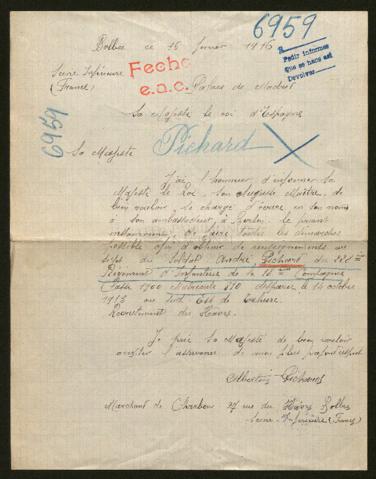 6959
Bolbec ce 16 février 1916
Pedir informes
que se haga así
Devolver
Seine Inférieure
(France)
Fecho
e.n.c.
Palais de Madrid
Sa Majesté le roi d'Espagne
6959
Pichard
Sa Majesté
J'ai l'honneur d'informer Sa
Majesté le Roi, son Auguste Maître, de
bien vouloir, le charge d'écrire, en son nom
à son ambassadeur, à Berlin, le priant
de faire toutes les démarches
possible afin d'obtenir de renseignements au
sujet du Soldat André Pichard du
Régiment d'Infanterie de la 18ème Compagnie
Classe 1900 Matricule 810 disparue le 14 octobre
1915 au Sud Est de Tahure.
Recrutement du Havre.
Je prie Sa Majesté de bien vouloir
accepter l'assurance de mon plus profond respect
Albertine Pichard
Marchand de Charbon 27 rue du Havre Bolbec
Seine-Inférieure (France)